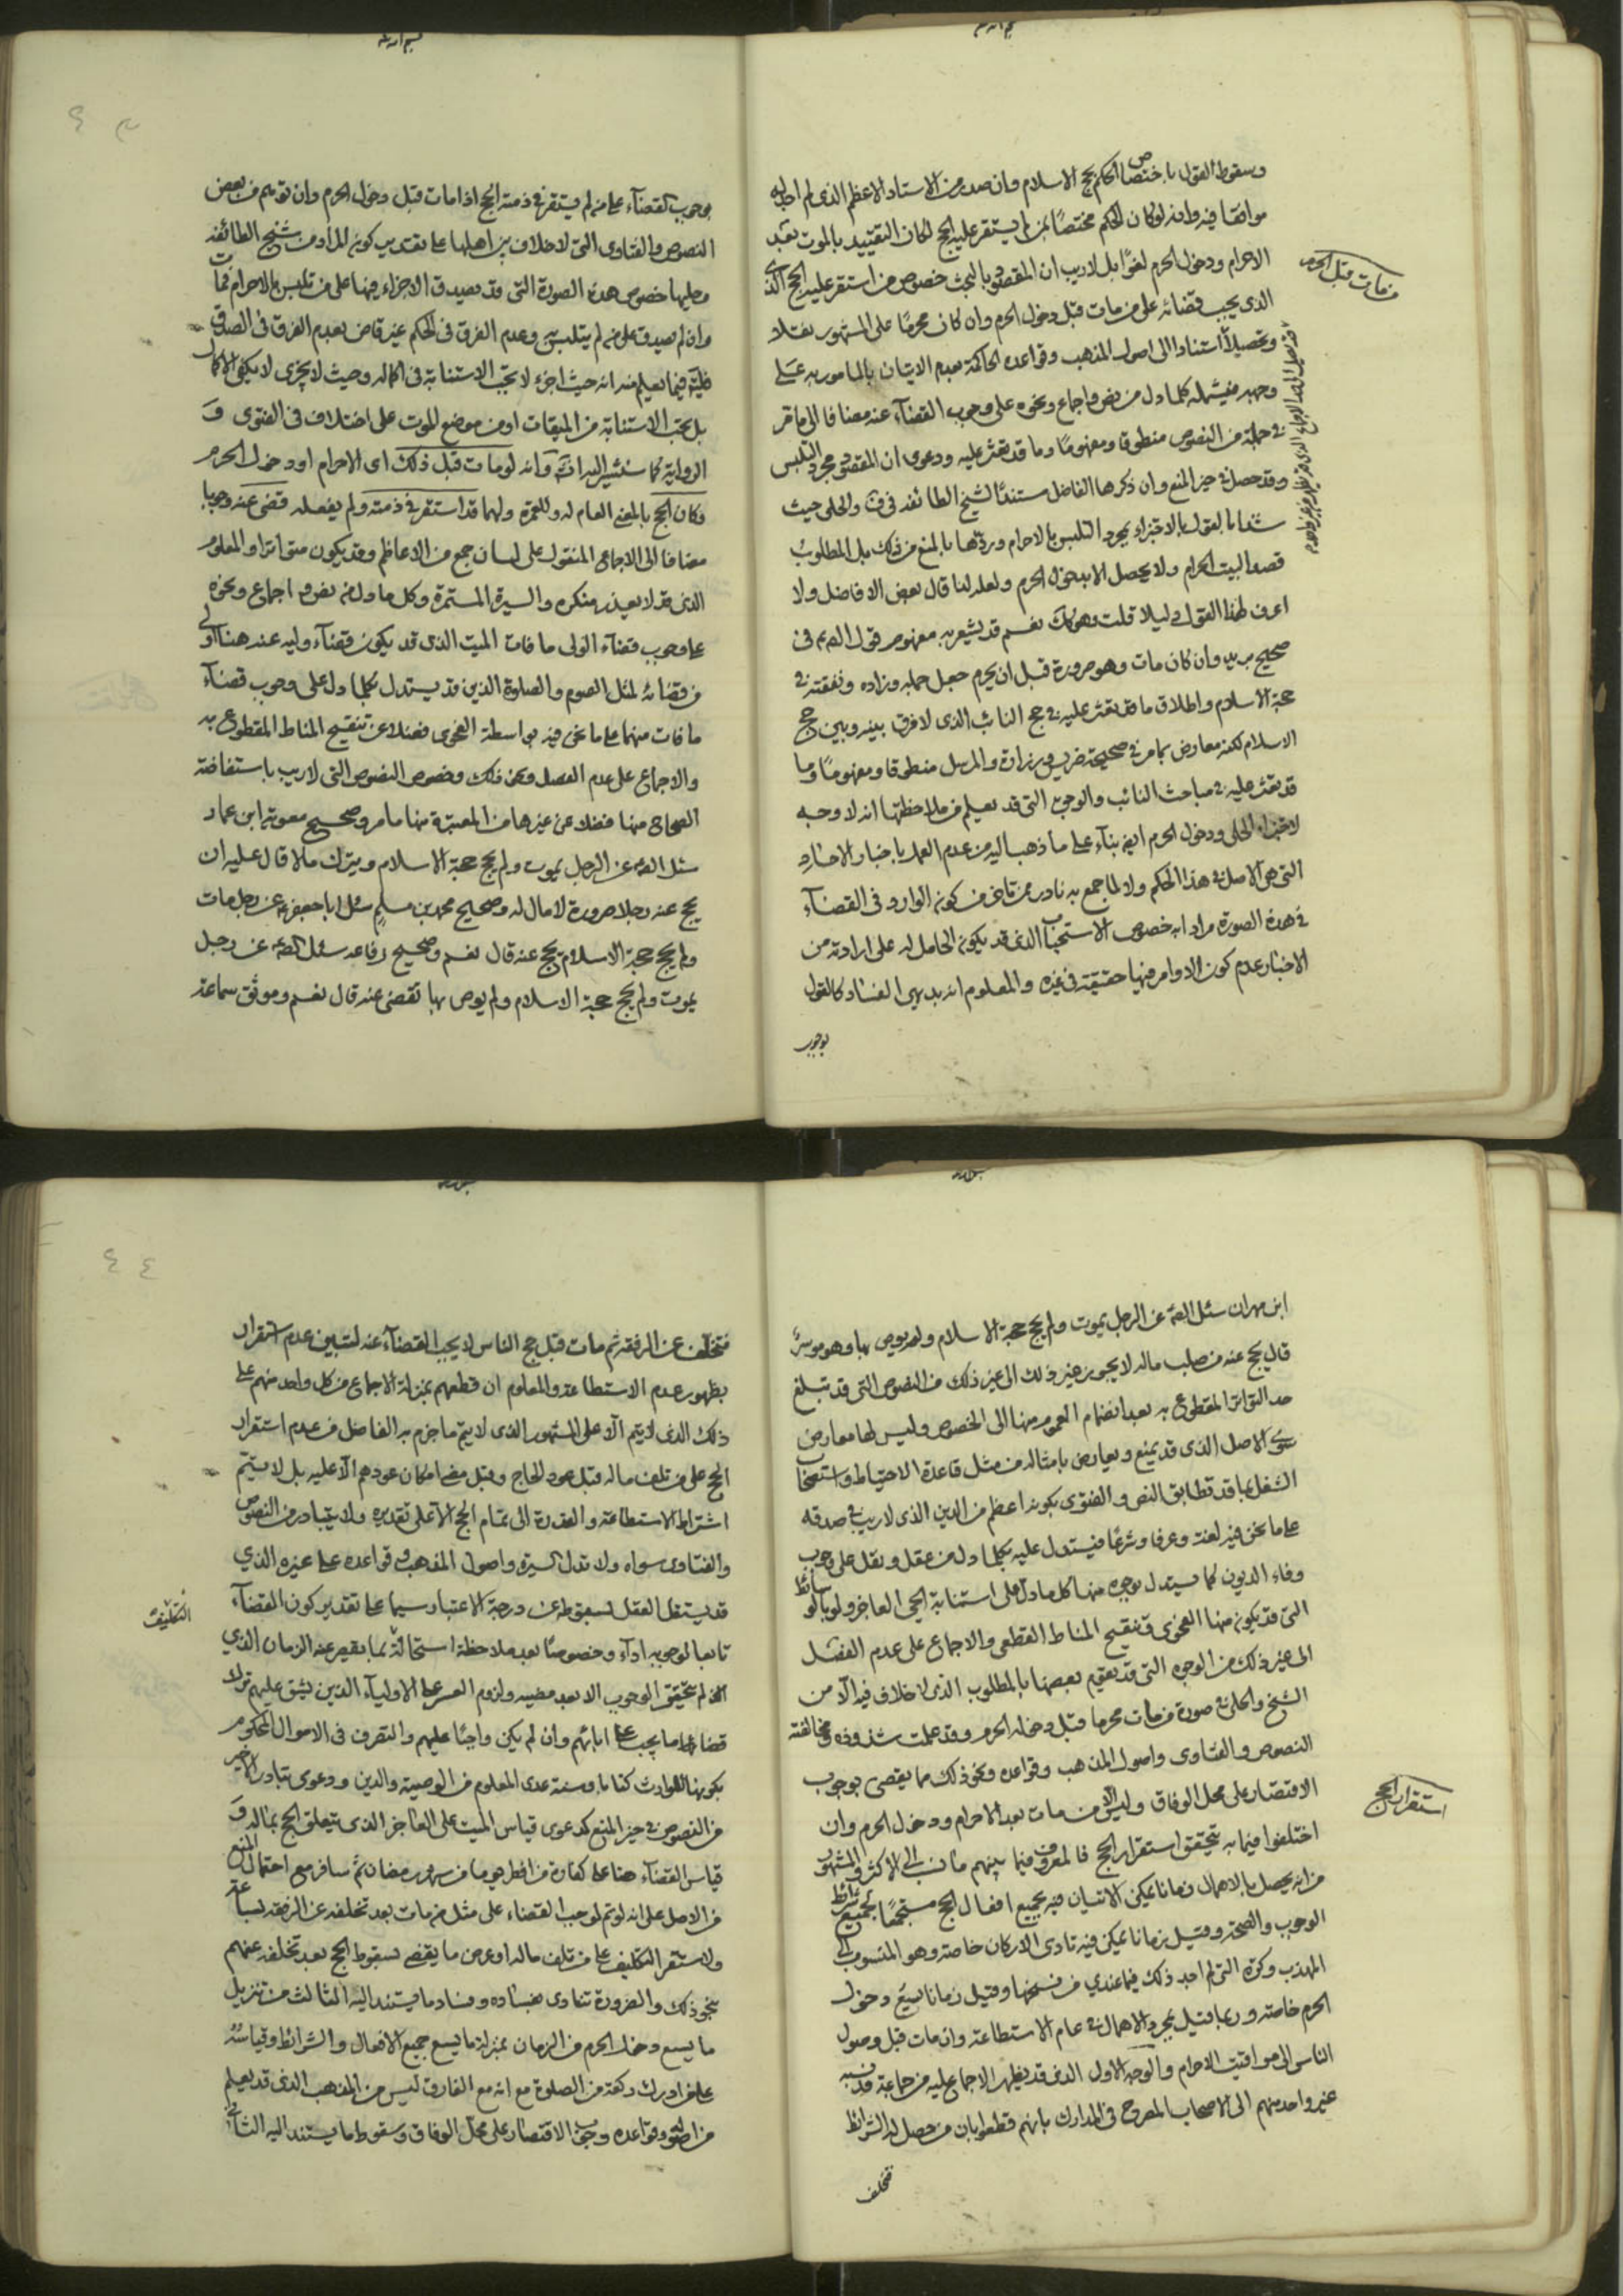 وسقوط القول باختصاص الحكم بحج الاسلام وان صدر من الاستاد الاعظم الذى لم اجد له
موافقا فيه وانه لو كان الحكم مختصًا بمن لم يستقر عليه الحج لكان التقييد بالموت بعد
الاحرام ودخول الحرم لغوًا بل لاريب ان المقصود بالبحث خصوص من استقر عليه الحج
الذى يجب قضائه على من مات قبل دخول الحرم وان كان محرمًا على المشهور نقلا
وتحصيلاً استنادا الى اصول المذهب وقواعده الحاكمة بعدم الاتيان بالمامور به على
وجهه فيشمله كلما دل من نص واجماع ونحوه على وجوب القضآء عنه مضافا الى ما قر
فى جملة من النصوص منطوقا ومفهومًا وما قد تعثر عليه ودعوى ان المقصود مجرد التلبس
وقد حصل فى حيز المنع وان ذكرها الفاضل مستندًا لشيخ الطائفه فى ف والحلى حيث
بالقول بالاجتزاء بمجرد التلبس بالاحرام وردّها بالمنع من ذلك بل المطلوب
قصد البيت الحرام ولا يحصل الا بدخول الحرم ولعله لذا قال بعض الافاضل ولا
اعرف لهذا القول دليلا قلت وهو كك نعم قد يشعر به مفهوم قوله ع فى
صحيح بريد وان كان مات وهو صرورة قبل ان يحرم جعل جمله وزاده ونفقته فى
حجة الاسلام واطلاق ما قد تعثر عليه فى حج النائب الذى لا فرق بينه وبين حج
الاسلام لكنه معارض بما مر فى صحيحة ضريس وزرارة والمرسل منطوقا ومفهومًا وما
قد تعثر عليه فى مباحث النائب والوجوه التى قد يعلم من ملاحظتها انه لا وجه
لاعتبار الحلى ودخول الحرم ايضا بنآء على ما ذهب اليه من عدم العمل باخبار الاحاد
التى هى الاصل فى هذا الحكم ولا لما جمع به نادر ممن تاخر من كون الوارد فى القضآء
فى هذه الصورة مرادا به خصوص الاستحباب الذى قد يكون الحامل له على ارادته من
الاخبار عدم كون الاوامر فيها حقيقة فى غيره والمعلوم انه بديهى الفساد كالقول
بوجوب
من مات قبل الحرم
بوجوب القضآء على من لم يستقر فى ذمته الحج اذا مات قبل دخول الحرم وان توهم من بعض
النصوص والفتاوى التى لا خلاف بين اهلها على تقدير كونه المراد من شيخ الطائفه
وحليها خصوص هذه الصورة التى قد يصدق الاجزاء فيها على من تلبس بالاحرام فمات
وان لم يصدق على من لم يتلبس وعدم الفرق فى الحكم غير قاض بعدم الفرق فى الصدق
فليتنبه فيما يعلم منه انه حيث اجزء لا تجب الاستنابة فى اكماله وحيث لا يجزى لا يكفى الاكمال
بل تجب الاستنابة من الميقات او من موضع الموت على اختلاف فى الفتوى و
الرواية كما ستشير اليه انش وانه لو مات قبل ذلك اى الاحرام او دخول الحرم
فكان الحج بالمعنى العام له وللعمرة ولهما قد استقر فى ذمته ولم يفعله قضى عنه وجوبا
مضافا الى الاجماعى المنقول على لسان جمع من الاعاظم وقد يكون متواترا والمعلوم
الذى قد لا يعذر منكره والسيرة المستمرة وكل ما دل من نص واجماع ونحوه
على وجوب قضآء الولى ما فات الميت الذى قد يكون قضآء وليه عنه هنا اولى
من قضائه لمثل الصوم والصلوة الذين قد يستدل بكلما دل على وجوب قضآء
ما فات منهما على ما نحن فيه بواسطة الفحوى فضلا عن تنقيح المناط المقطوع به
والاجماع على عدم الفصل ونحو ذلك وخصوص النصوص التى لاريب باستفاضة
الصحاح منها فضلا عن غيرها من المعتبرة منها ما مر وصحيح معوية ابن عمار
سئل الصم عن الرجل يموت ولم يحج حجة الاسلام ويترك مالا قال عليه ان
يحج عنه رجلا صرورة لا مال له وصحيح محمد بن مسلم سئل ابا جعفر ع عن رجل مات
ولم يحج حجة الاسلام يحج عنه قال نعم وصحيح رفاعه سئل الصم عن رجل
يموت ولم يحج حجة الاسلام ولم يوص بها تقضى عنه قال نعم وموثق سماعة
ابن مهران سئل الصم عن الرجل يموت ولم يحج حجة الاسلام ولم يوص بها وهو موسرٌ
قال يحج عنه من صلب ماله لا يجوز غير ذلك الى غير ذلك من النصوص التى قد تبلغ
حد التواتر المقطوع به بعد انضمام العموم منها الى الخصوص وليس لها معارض
سوى الاصل الذى قد يمنع ويعارض بامثاله من مثل قاعدة الاحتياط واستصحاب
الشغل بما قد تطابق النص والفتوى بكونه اعظم من الدين الذى لاريب فى صدقه
على ما نحن فيه لغة وعرفا وشرعًا فيستدل عليه بكلما دل من عقل ونقل على وجوب
وفاء الديون كما يستدل بوجوه منها كل ما دل على استنابة الحى العاجز ولو بالوسائط
التى قد يكون منها الفحوى وتنقيح المناط القطعى والاجماع على عدم الفصل
الى غير ذلك من الوجوه التى قد يقوم بعضها بالمطلوب الذى لا خلاف فيه الا من
الشيخ والحلى فى صورة من مات محرما قبل دخوله الحرم وقد علمت شذوذه ومخالفته
النصوص والفتاوى واصول المذهب وقواعده ونحو ذلك مما يقضى بوجوب
الاقتصار على محل الوفاق وليس الا من مات بعد الاحرام ودخول الحرم وان
اختلفوا فيما به يتحقق استقرار الحج فالمعروف فيما بينهم ما نسب الى الاكثر والمشهور
من انه يحصل بالاهمال زمانا يمكن الاتيان فيه بجميع افعال الحج مستجمعًا لجميع شرائط
الوجوب والصحة وقيل زمانا يمكن فيه تادى الاركان خاصة وهو المنسوب الى
المهذب وكره التى لم اجد ذلك فيما عندى من نسخها وقيل زمانا يسع دخول
الحرم خاصة وربما قيل بمجرد الاهمال فى عام الاستطاعة وان مات قبل وصول
الناس الى مواقيت الاحرام والوجه الاول الذى قد يظهر الاجماع عليه من جماعة قد نسبه
غير واحد منهم الى الاصحاب المصرح فى المدارك بانهم قطعوا بان من حصل له الشرائط
فتخلف
استقرار الحج
فتخلف عن الرفقه ثم مات قبل حج الناس لا يجب القضآء عنه لتبين عدم استقرار
بظهور عدم الاستطاعة والمعلوم ان قطعهم بمنزلة الاجماع من كل واحد منهم على
ذلك الذى لا يتم الّا على المشهور الذى لا يتم ما جزم به الفاضل من عدم استقرار
الحج على من تلف ماله قبل عود الحاج وقبل مضى امكان عودهم الّا عليه بل لا يتم
اشتراط الاستطاعة والقدرة الى تمام الحج الا على تقديره ولا يتبادر من النصوص
والفتاوى سواه ولا تدل السيرة واصول المذهب وقواعده على غيره الذي
قد يستقل العقل بسقوطه عن درجة الاعتبار سيما على تقدير كون القضآء
تابعا لوجوبه ادآء وخصوصًا بعد ملاحظة استحالة بما يقصر عنه الزمان الذي
لم يتحقق الوجوب الا بعد مضيه ولزوم العسر على الاوليآء الذين يشق عليهم
قضاء ما يجب على ابائهم وان لم يكن واجبًا عليهم والتصرف فى الاموال المحكوم
بكونها للوارث كتابا وسنة عدى المعلوم من الوصية والدين ودعوى تبادر الاخير
من النصوص فى حيز المنع كدعوى قياس الميت على العاجز الذى يتعلق الحج بماله و
قياس القضآء هنا على كفارة من افطر يوما من شهر رمضان ثم سافر مع احتمال المنع
من الاصل على انه لو تم لوجب القضاء على مثل من مات بعد تخلفه عن الرفقه بساعة
ولاستقر التكليف على من تلف ماله او عرض ما يقضى بسقوط الحج بعد تخلفه عنهم
بنحو ذلك والضرورة تنادى بفساده وفساد ما يستند اليه الثالث من تنزيل
ما يسع دخول الحرم من الزمان بمنزلة ما يسع جميع الافعال والشرائط وقياسه
على من ادرك ركعة من الصلوة مع انه مع الفارق ليس من المذهب الذى قد يعلم
من اصوله وقواعده وجوب الاقتصار على محل الوفاق وسقوط ما يستند اليه الثانى
التكليف